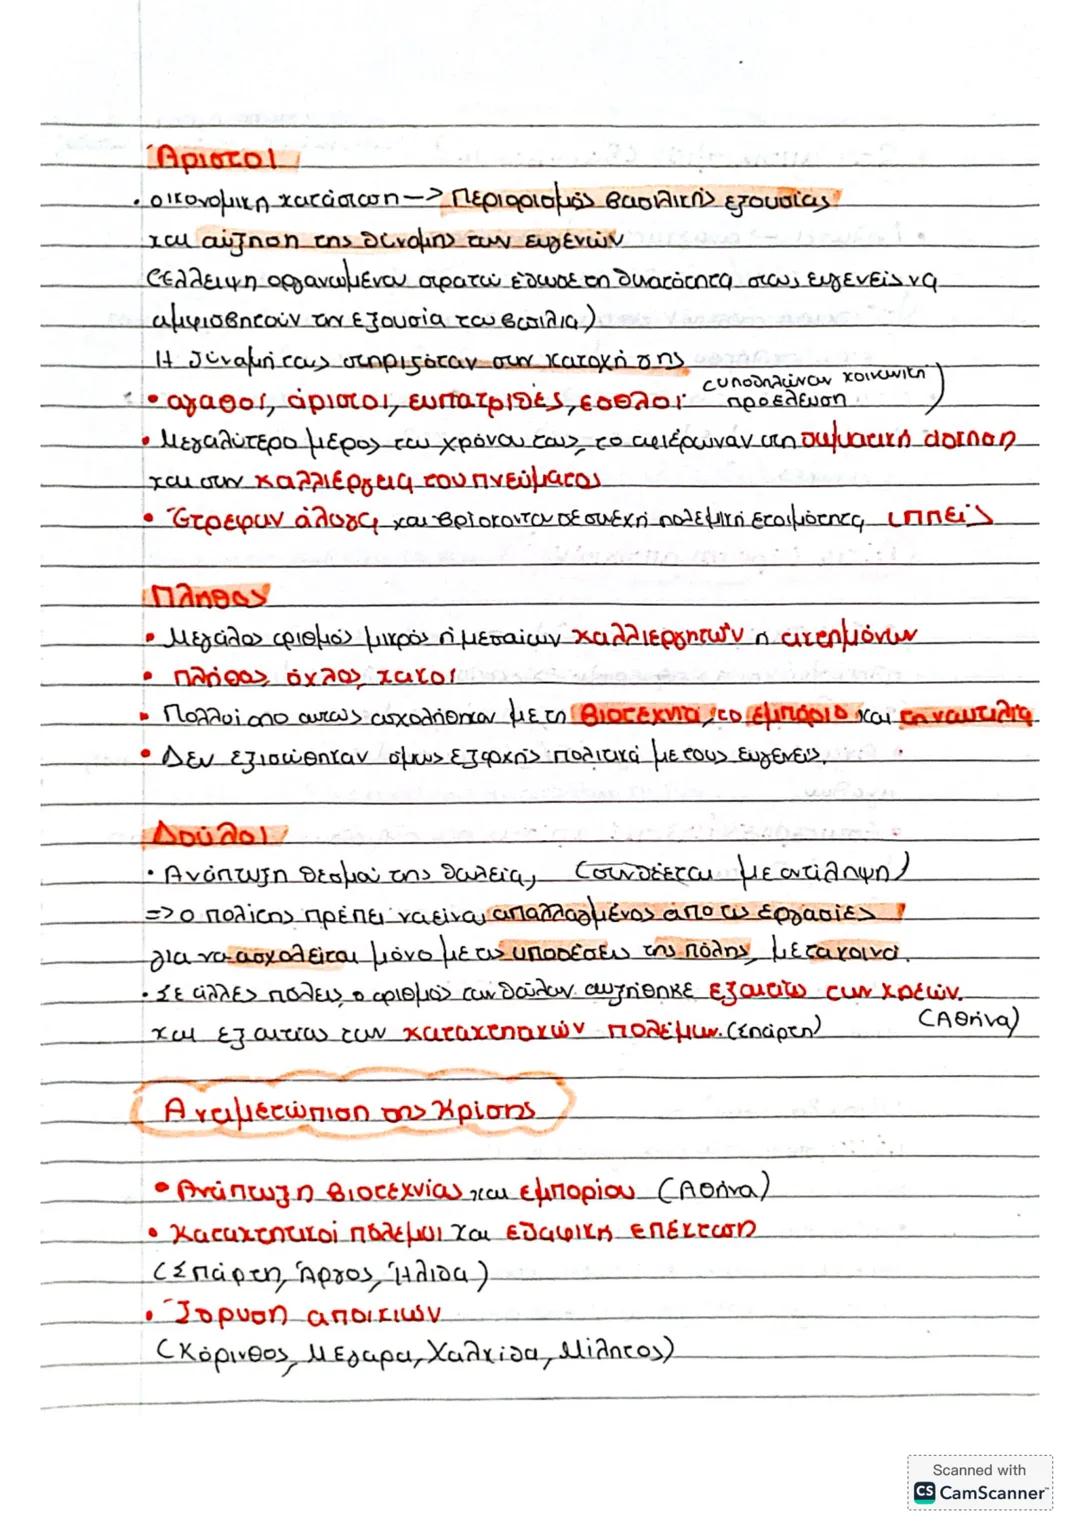 Άριστοι
• οικονομική κατάσταση -> Περιορισμός βασιλικής εξουσίας
και αύξηση της δύναμης των ευγενών
(Έλλειψη οργανωμένου στρατού έδωσε τη δυνατότητα στους ευγενείς να
αμφισβητούν την εξουσία του βασιλιά)
Η δύναμή τους στηριζόταν στην κατοχή γης
• αγαθοί, άριστοι, ευπατρίδες, εσθλοί (υποδηλώνουν κοινωνική προέλευση)
• Μεγαλύτερο μέρος του χρόνου τους, το αφιέρωναν στη σωματική άσκηση
και στην καλλιέργεια του πνεύματος
• Έτρεφαν άλογα και βρίσκονταν σε συνεχή πολεμική ετοιμότητα ιππείς
Πλήθος
• Μεγάλος αριθμός μικρός ή μεσαίων καλλιεργητών ή ακτημόνων
• πλήθος, όχλος, κακοί
• Πολλοί από αυτούς ασχολήθηκαν με τη βιοτεχνία, το εμπόριο και τη ναυτιλία
• Δεν εξισώθηκαν όμως εξαρχής πολιτικά με τους ευγενείς.
Δούλοι
• Ανάπτυξη θεσμού της δουλείας (συνδέεται με αντίληψη)
=> ο πολίτης πρέπει να είναι απαλλαγμένος από τις εργασίες
για να ασχολείται μόνο με τις υποθέσεις της πόλης, με τα κοινά.
• Σε άλλες πόλεις ο αριθμός των δούλων αυξήθηκε εξαιτίας των χρεών.
(Αθήνα)
και εξαιτίας των κατακτητικών πολέμων. (Σπάρτη)
Αντιμετώπιση της Κρίσης
• Ανάπτυξη βιοτεχνίας και εμπορίου (Αθήνα)
• Κατακτητικοί πόλεμοι και εδαφική επέκταση
(Σπάρτη, Άργος, Ήλιδα)
• Ίδρυση αποικιών
(Κόρινθος, Μέγαρα, Χαλκίδα, Μίλητος)
Scanned with
CS CamScanner